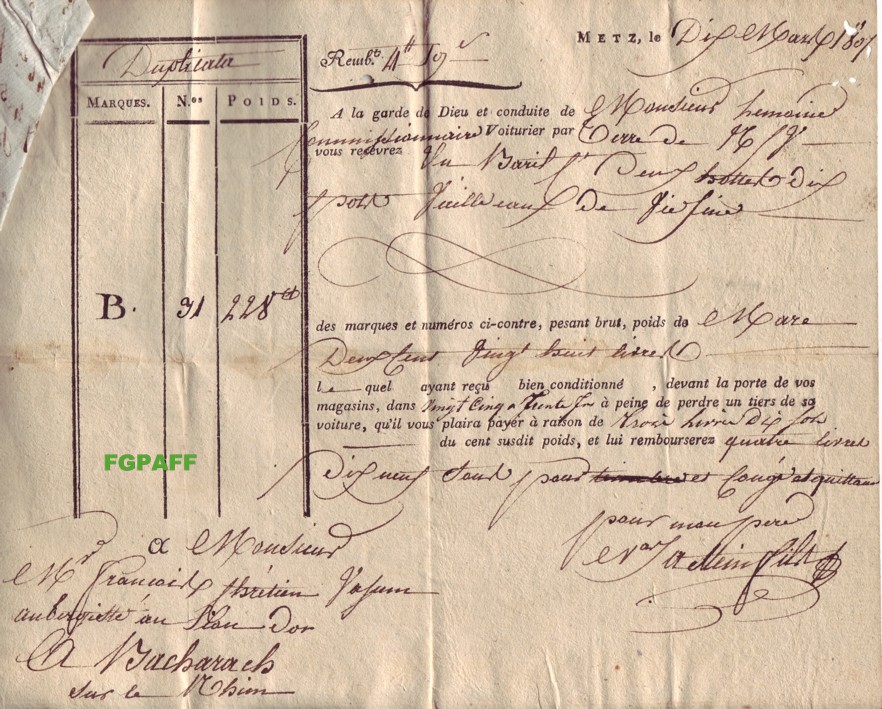 Metz, le Dix Mars 1807
Duplicata
Remb.t 4
Marques. N.os Poids.
A la garde de Dieu et conduite de Monsieur Lemoine
Commissionnaire Voiturier par Terre de
vous recevrez Un Baril Deux Dix
pots Vieille eaux de Vie fine
B. 31 228
des marques et numéros ci-contre, pesant brut, poids de Marc
Deux Cent Vingt huit livres
le quel ayant reçu bien conditionné , devant la porte de vos
magasins, dans Vingt Cinq a Trente à peine de perdre un tiers de sa
voiture, qu'il vous plaira payer à raison de trois Livres Dix Sols
du cent susdit poids, et lui rembourserez quatre livres
dix neuf sous pour et Congé
FGPAFF
pour mon pere
fils
a Monsieur
Mr François Chrétien
aubergiste au Lion Dor
A Bacharach
sur le Rhin